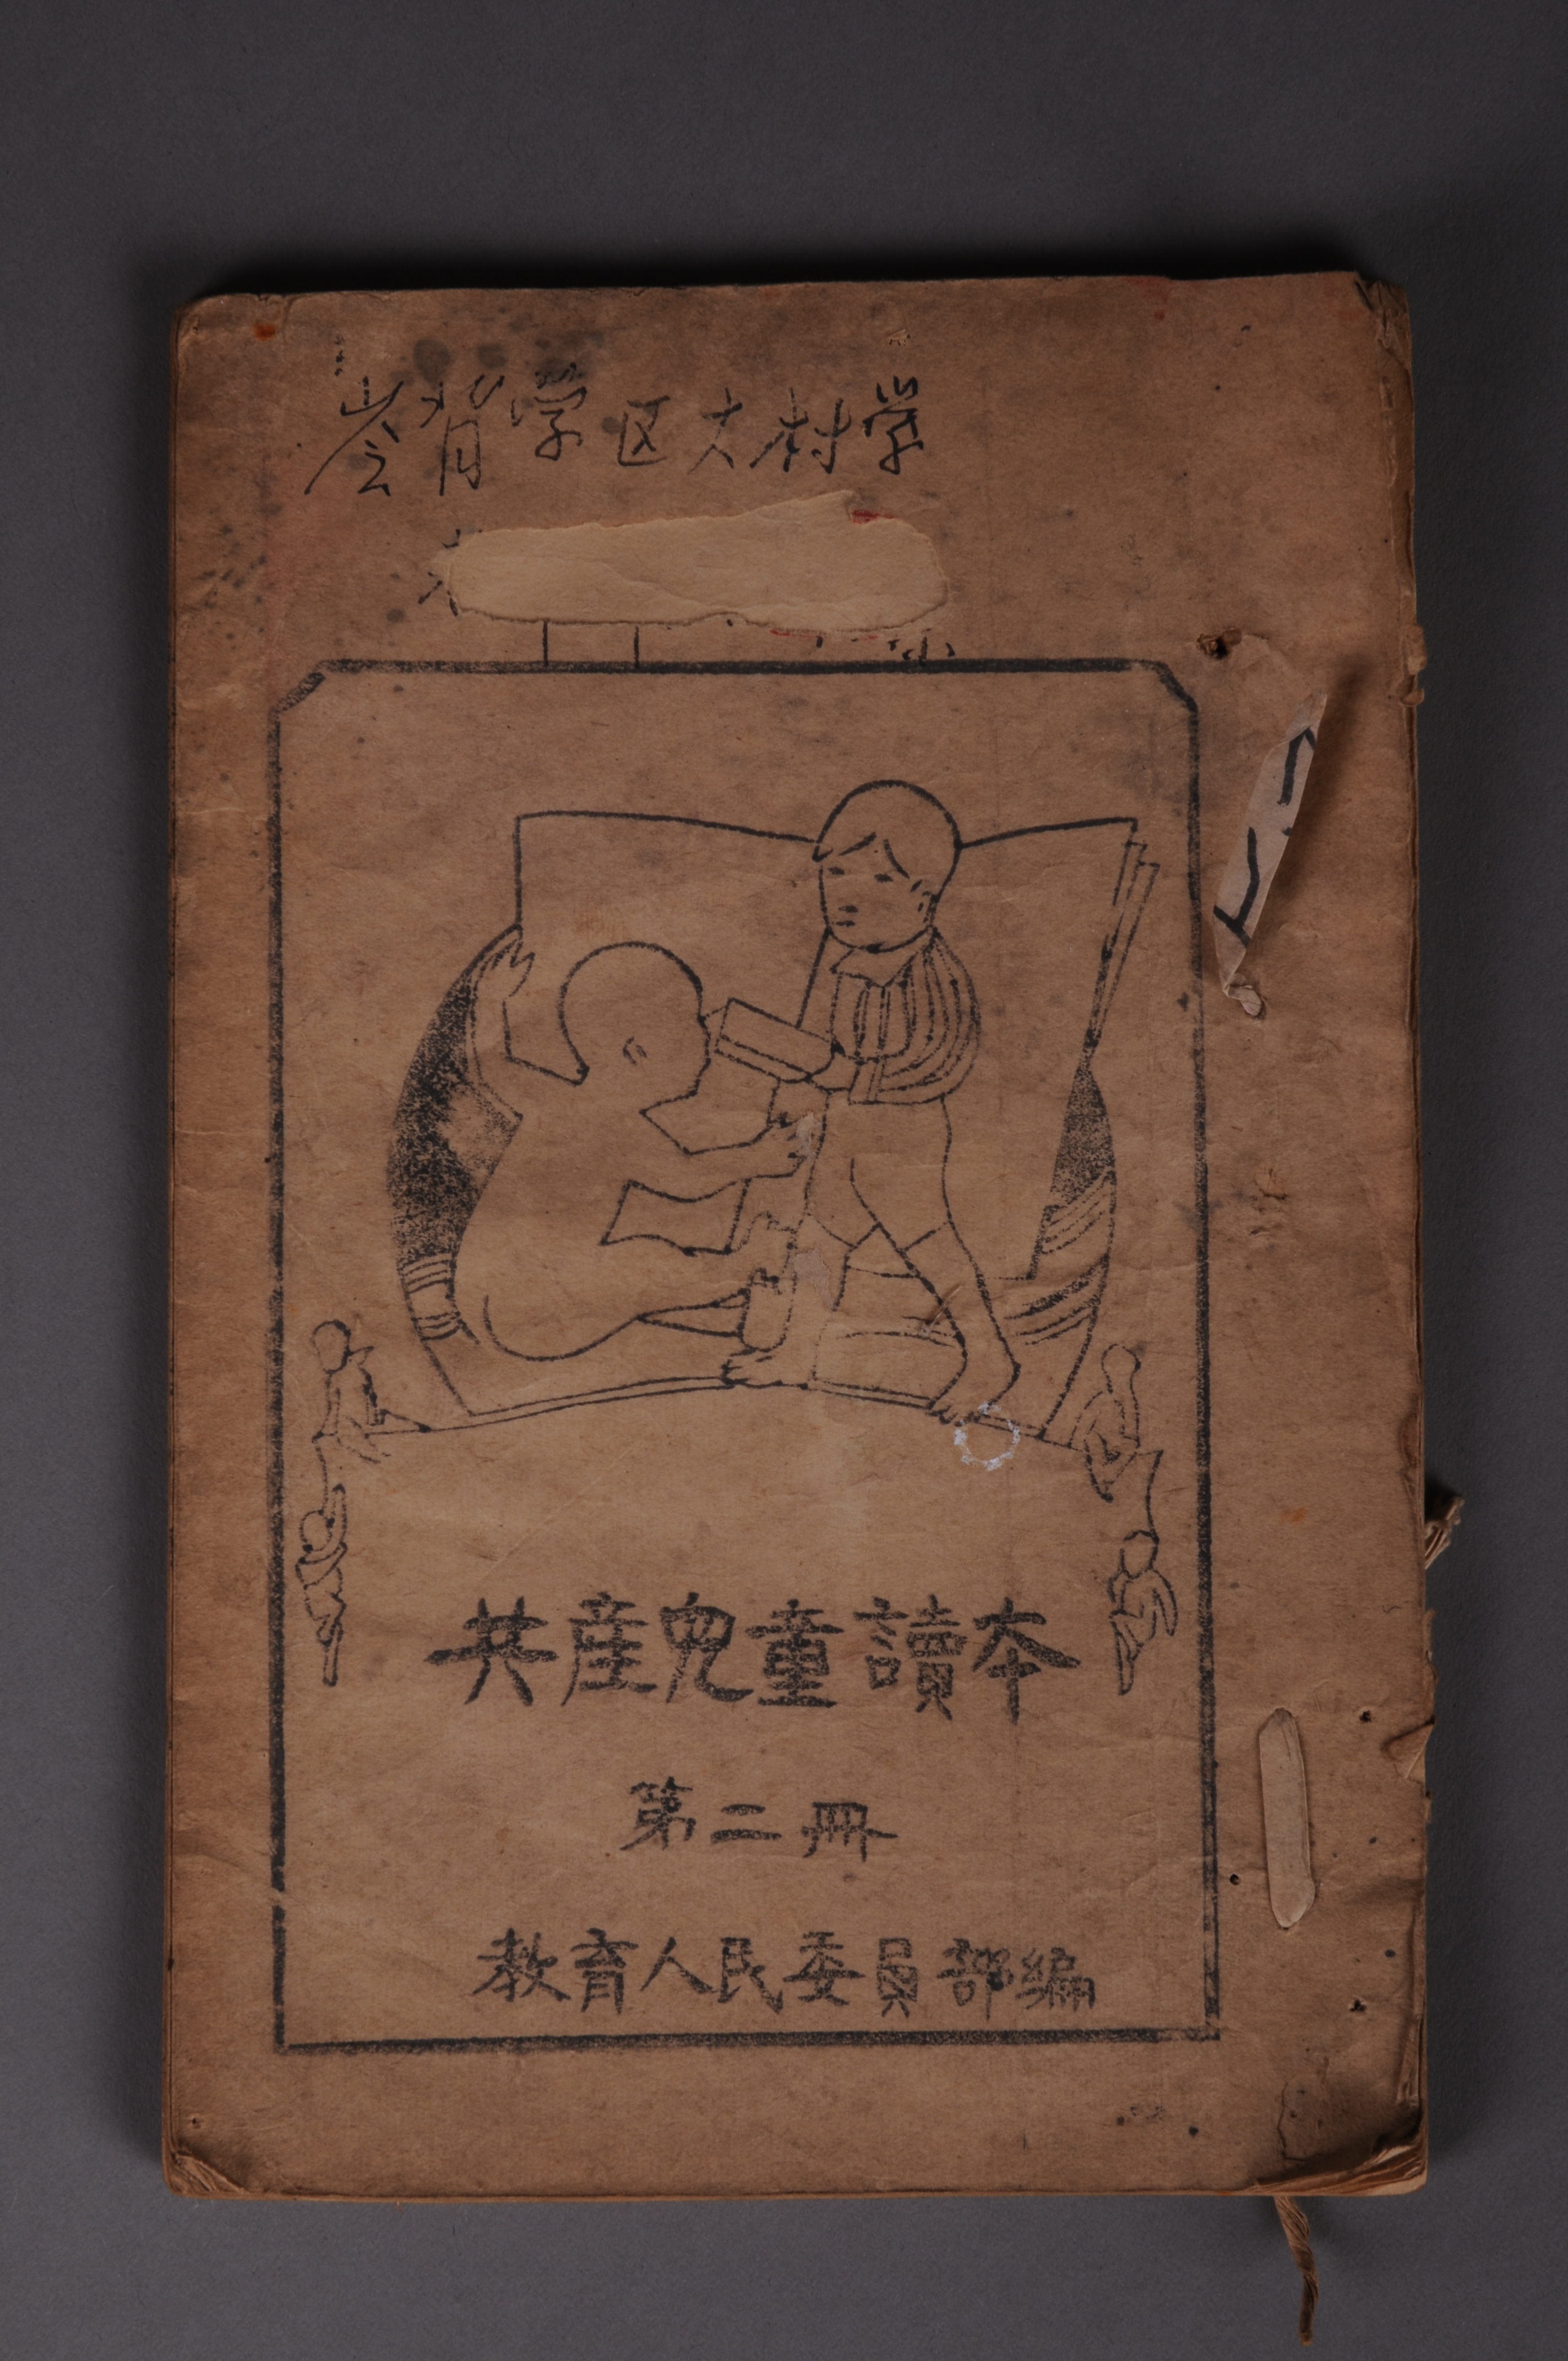 岑背学区大村学
共産兒童讀本
第二冊
教育人民委員部編